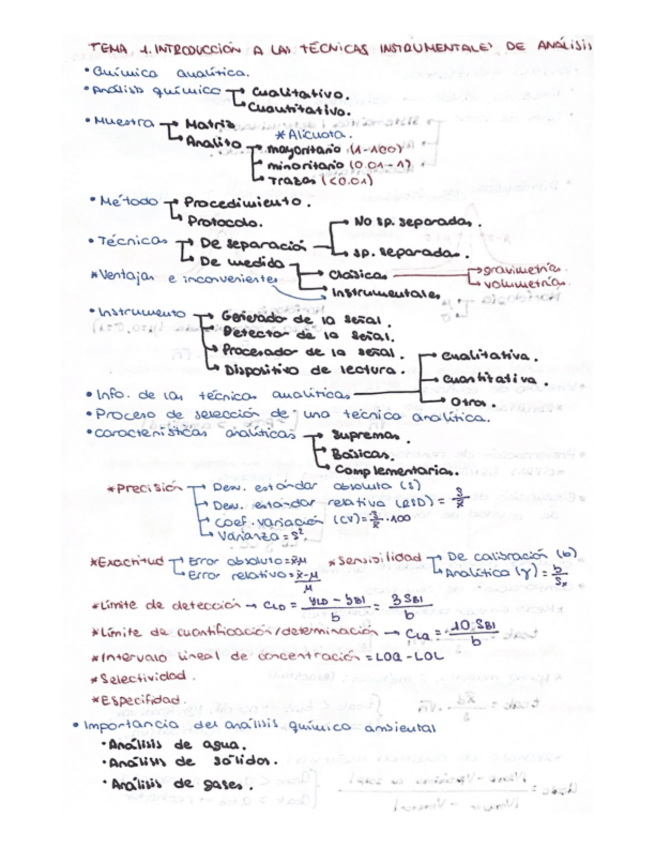 TEMA 1. INTRODUCCIÓN A LAS TÉCNICAS INSTRUMENTALES DE ANÁLISIS
• Química analítica.
• Análisis químico → Cualitativo.
→ Cuantitativo.
• Muestra → Matriz
*Alícuota.
→ Analito → mayoritario (1-100)
→ minoritario (0.01-1)
→ Trazas (<0.01)
• Método → Procedimiento.
→ Protocolo.
→ No sp. separadas.
• Técnicas → De separación
→ sp. separadas.
→ De medida
→ Clásicas → gravimetrías.
→ volumetrías.
*Ventajas e inconvenientes
→ Instrumentales
• Instrumento → Generador de la señal.
→ Detector de la señal.
→ Procesador de la señal.
→ Dispositivo de lectura.
→ Cualitativa.
→ Cuantitativa.
• Info. de las técnicas analíticas
→ Otros.
• Proceso de selección de una técnica analítica.
• Características analíticas → Supremas.
→ Básicas.
→ Complementarias.
*Precisión → Desv. estándar absoluta (s)
→ Desv. estándar relativa (RSD) = s/x̄
→ Coef. variación (CV) = s/x̄ · 100
→ Varianza = s²
*Exactitud → Error absoluto = x̄-μ *Sensibilidad → De calibración (b)
→ Error relativo = x̄-μ/μ → Analítica (γ) = b/Sx
*Límite de detección → CLD = yLD - yBl / b = 3 SBl / b
*Límite de cuantificación/determinación → CLQ = 10 SBl / b
*Intervalo lineal de concentración = LOQ - LOL
*Selectividad.
*Especifidad.
• Importancia del análisis químico ambiental
• Análisis de agua.
• Análisis de sólidos.
• Análisis de gases.